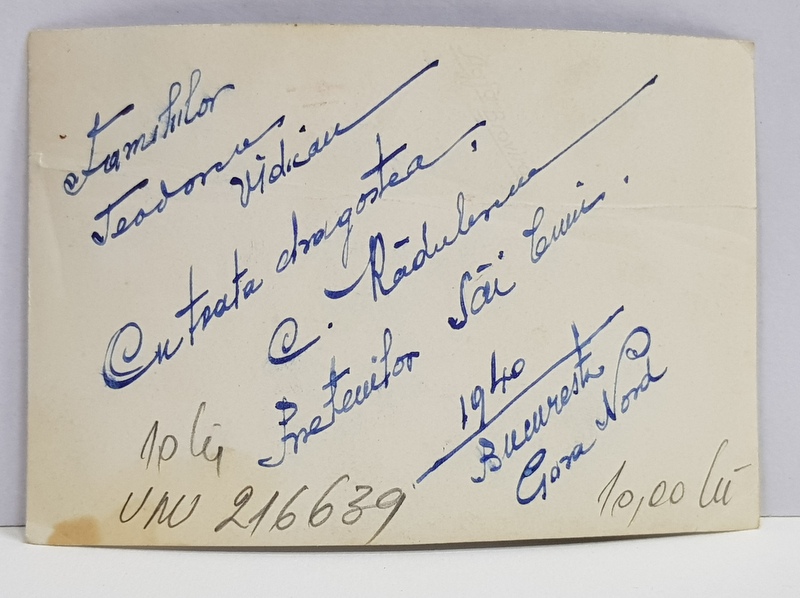 Familiilor
Teodorescu
Vîdican
Cu toata dragostea,
C. Rădulescu
Prietenilor Săi
1940
Bucuresti
Gara Nord
10 lei
216639
10,00 lei